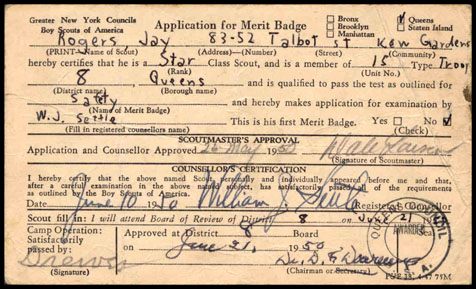 Greater New York Councils Application for Merit Badge Bronx Queens
Boy Scouts of America Brooklyn Staten Island
Manhattan
Rogers Jay 83-52 Talbot st Kew Gardens
(PRINT-Name of Scout) (Address)-(Number) (Street) (Community)
hereby certifies that he is a Star Class Scout, and is a member of 15 Type Troop
(Rank) (Unit No.)
8 Queens and is qualified to pass the test as outlined for
(District name) (Borough name)
Safety and hereby makes application for examination by
(Name of Merit Badge)
W.J. Settle This is his first application Yes No
(Fill in registered counsellors name) (Check)
SCOUTMASTER'S APPROVAL
Application and Counsellor Approved 26 May 1950
(Signature of Scoutmaster)
COUNSELLOR'S CERTIFICATION
I hereby certify that the above named Scout, personally (and individually) appeared before me and that,
after a careful examination in the above named subject, has satisfactorily passed all of the requirements
as outlined by the Boy Scouts of America.
Date June 10 1950 William J. Settle (Registered Counsellor)
Scout fill in: I will attend Board of Review of District 8 on June 21
Camp Operation: Approved at District 8
Satisfactorily on June 21, 1950
passed by:
(Signature) (Chairman or Secretary)
AWARDED